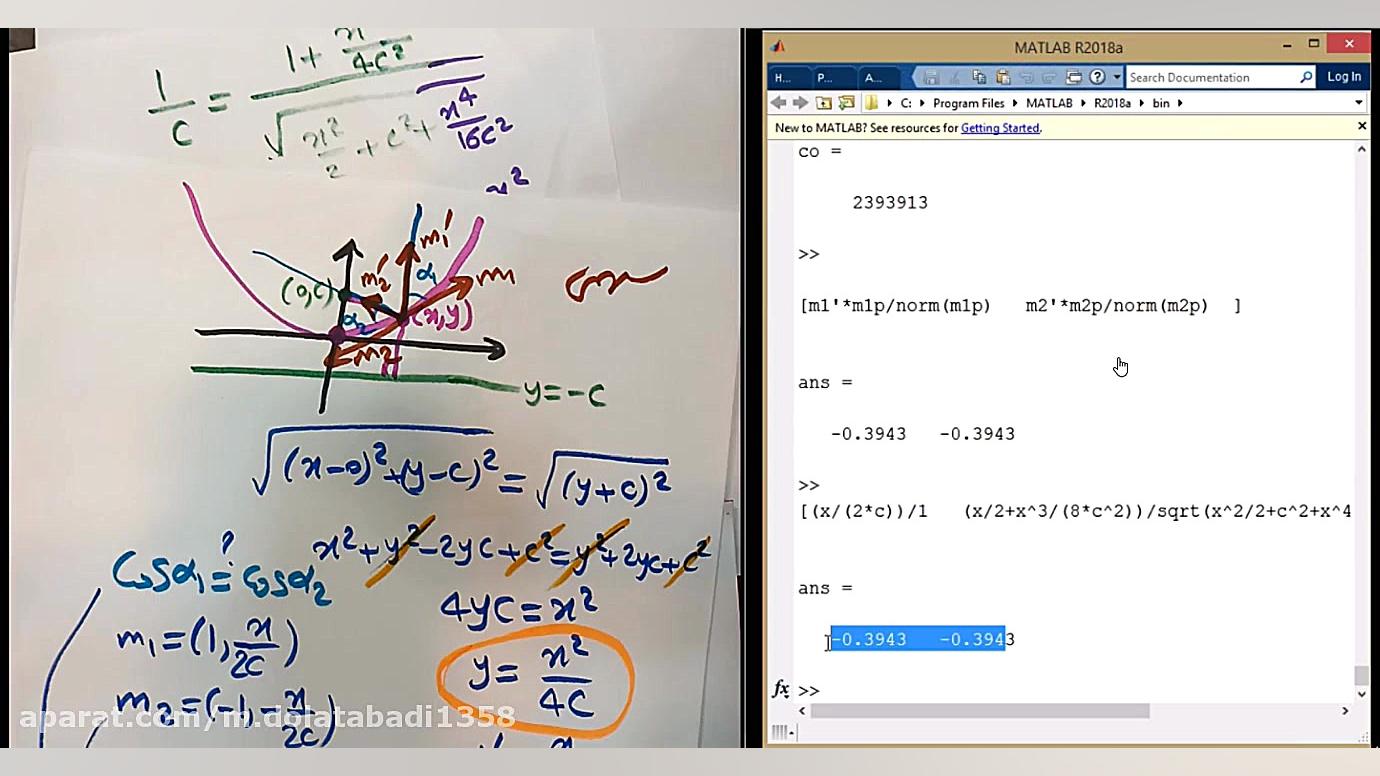 1/C = (1 + x²/4C²) / √(x²/2 + C² + x⁴/16C²)
x²
m₁'
m₂'
α₁
m
(0,C)
α₂
(x,y)
m₂
y=-C
√((x-0)²+(y-C)²) = √((y+C)²)
x²+y²-2yC+C²=y²+2yC+C²
Cosα₁ ?= cosα₂
4yC=x²
m₁=(1, x/2C)
y= x²/4C
m₂=(-1, -x/2C)
aparat.com/m.dolatabadi1358
MATLAB R2018a
H... P... A... Search Documentation Log In
C: Program Files MATLAB R2018a bin
New to MATLAB? See resources for Getting Started.
co =
2393913
>>
[m1'*m1p/norm(m1p) m2'*m2p/norm(m2p) ]
ans =
-0.3943 -0.3943
>>
[(x/(2*c))/1 (x/2+x^3/(8*c^2))/sqrt(x^2/2+c^2+x^4
ans =
-0.3943 -0.3943
fx >>